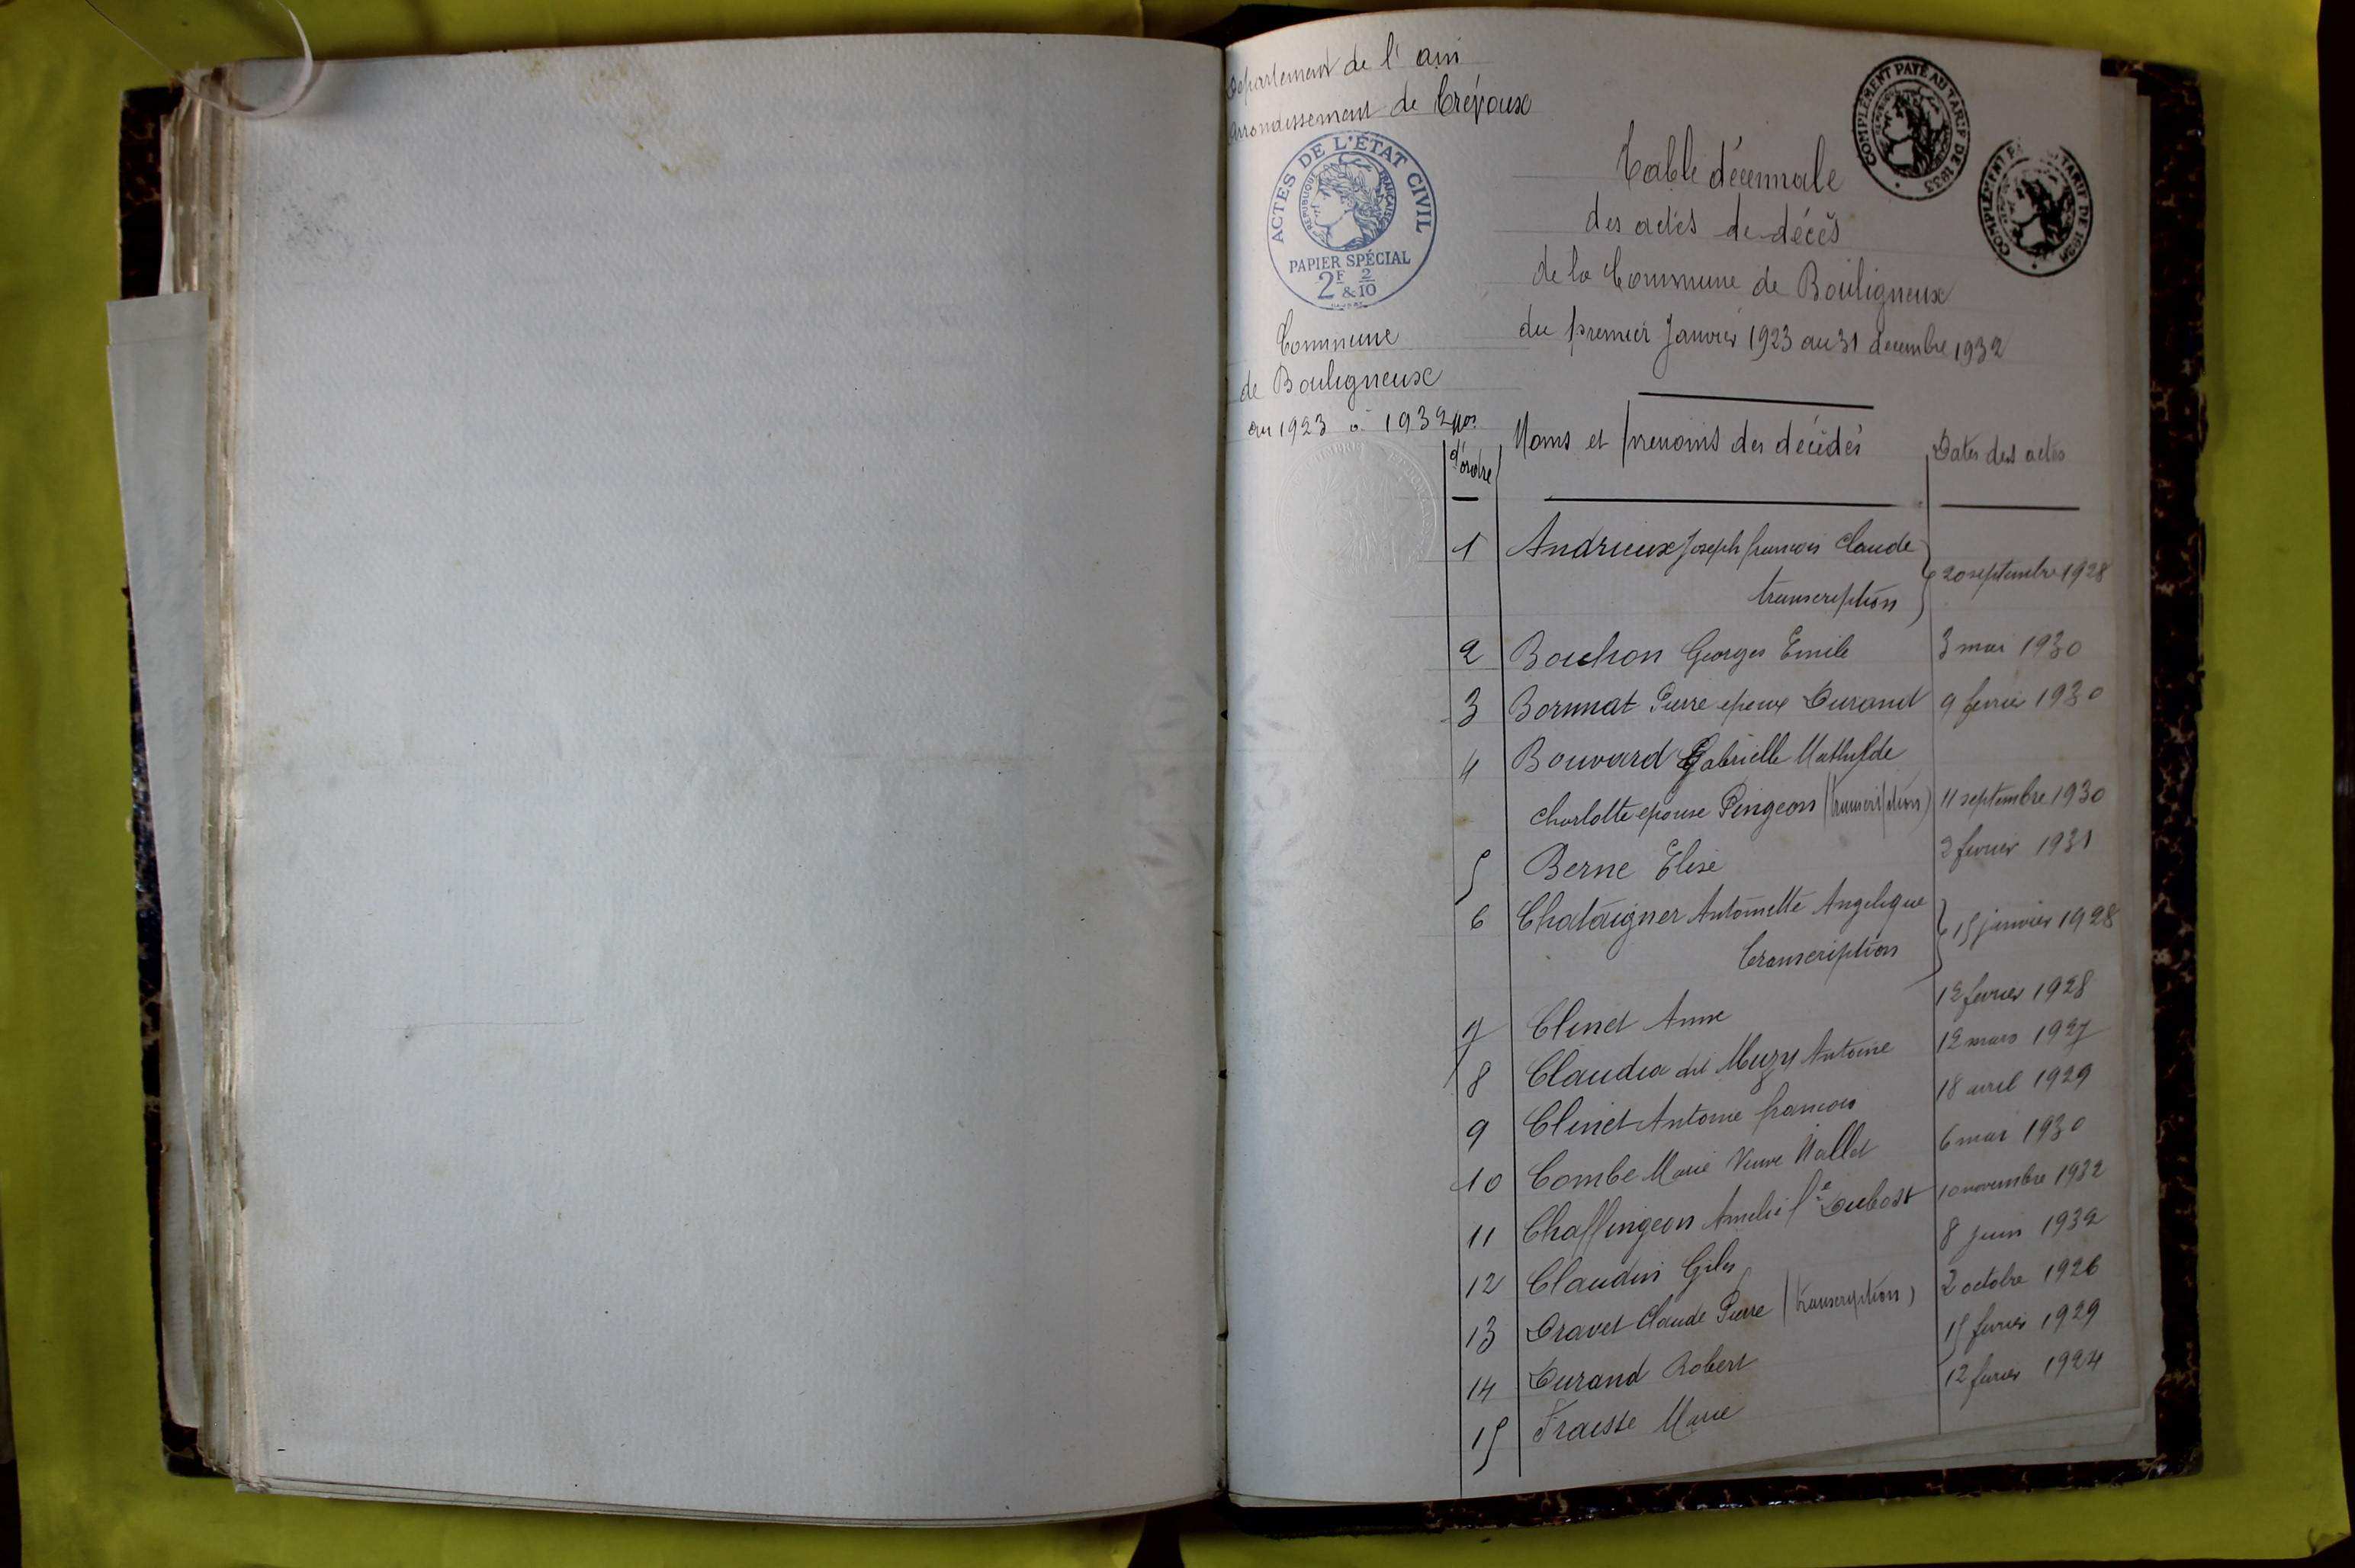 Département de l'ain
arrondissement de Trévoux
ACTES DE L'ÉTAT CIVIL
RÉPUBLIQUE FRANÇAISE
PAPIER SPÉCIAL
2F & 2/10
COMPLÉMENT PAYÉ AU TARIF DE 1933
COMPLÉMENT P TARIF DE
Table décennale
des actes de décès
de la Commune de Bouligneux
du premier Janvier 1923 au 31 decembre 1932
Commune
de Bouligneux
an 1923 à 1932
Nos d'ordre Noms et prenoms des décédés Dates des actes
1 Andrieux Joseph francois Claude
transcription 20 septembre 1928
2 Bouchon Georges Emile 3 mai 1930
3 Bornnat Pierre epoux Durand 9 fevrier 1930
4 Bouvard Gabrielle Mathilde
charlotte epouse Pingeon (transcription) 11 septembre 1930
5 Berne Elise 2 fevrier 1931
6 Chataigner Antoinette Angelique
transcription 15 janvier 1928
7 Clinet Anne 12 fevrier 1928
8 Claudia dit Muzy Antoine 12 mars 1927
9 Clinet Antoine francois 18 avril 1929
10 Combe Marie Veuve Nallet 6 mai 1930
11 Chaffingeon Amelie fe Dubost 10 novembre 1932
12 Claudin Giles 8 juin 1932
13 Dravet Claude Pierre (transcription) 2 octobre 1926
14 Durand Robert 15 fevrier 1929
15 Fraisse Marie 12 fevrier 1924